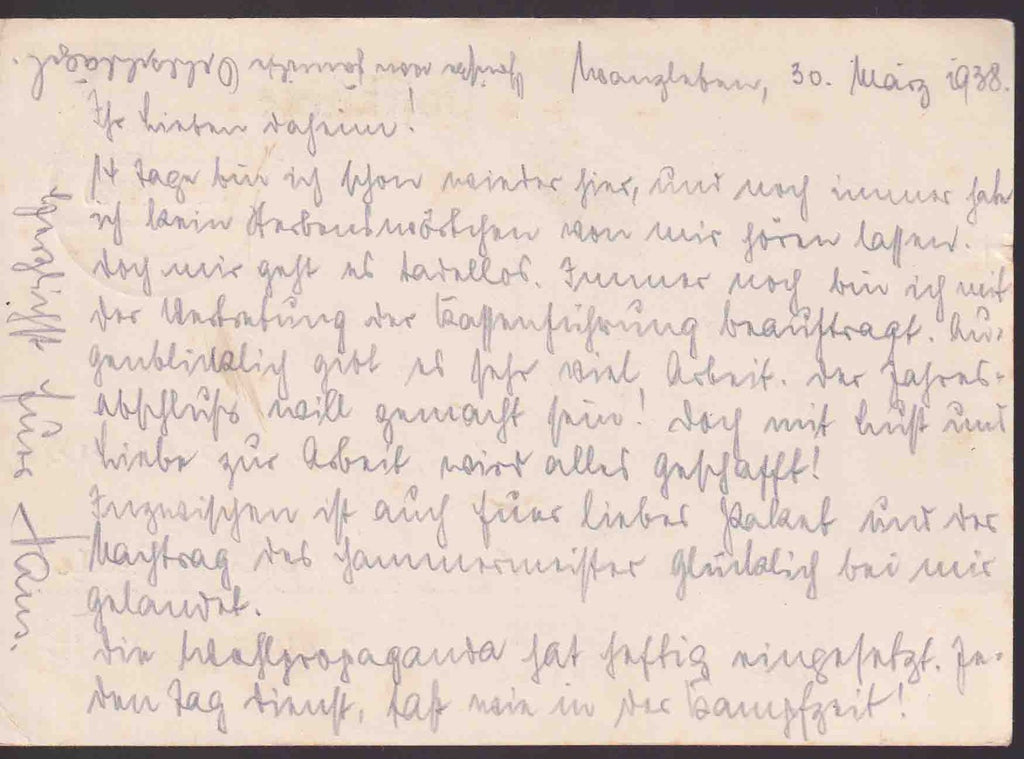 Wanzleben, 30. März 1938.
Ihr Lieben daheim!
14 Tage bin ich schon wieder hier, und noch immer habe
ich kein Sterbenswörtchen von mir hören lassen.
Doch mir geht es tadellos. Immer noch bin ich mit
der Vertretung der Kassenführung beauftragt. Au-
genblicklich gibt es sehr viel Arbeit. Der Jahres-
abschluß will gemacht sein! Doch mit Lust und
Liebe zur Arbeit wird alles geschafft!
Inzwischen ist auch Euer liebes Paket und der
Nachtrag des Hammermeister glücklich bei mir
gelandet.
Die Wahlpropaganda hat heftig eingesetzt. Je-
den Tag Dienst, fast wie in der Kampfzeit!
gegrüßt Euer Hans.